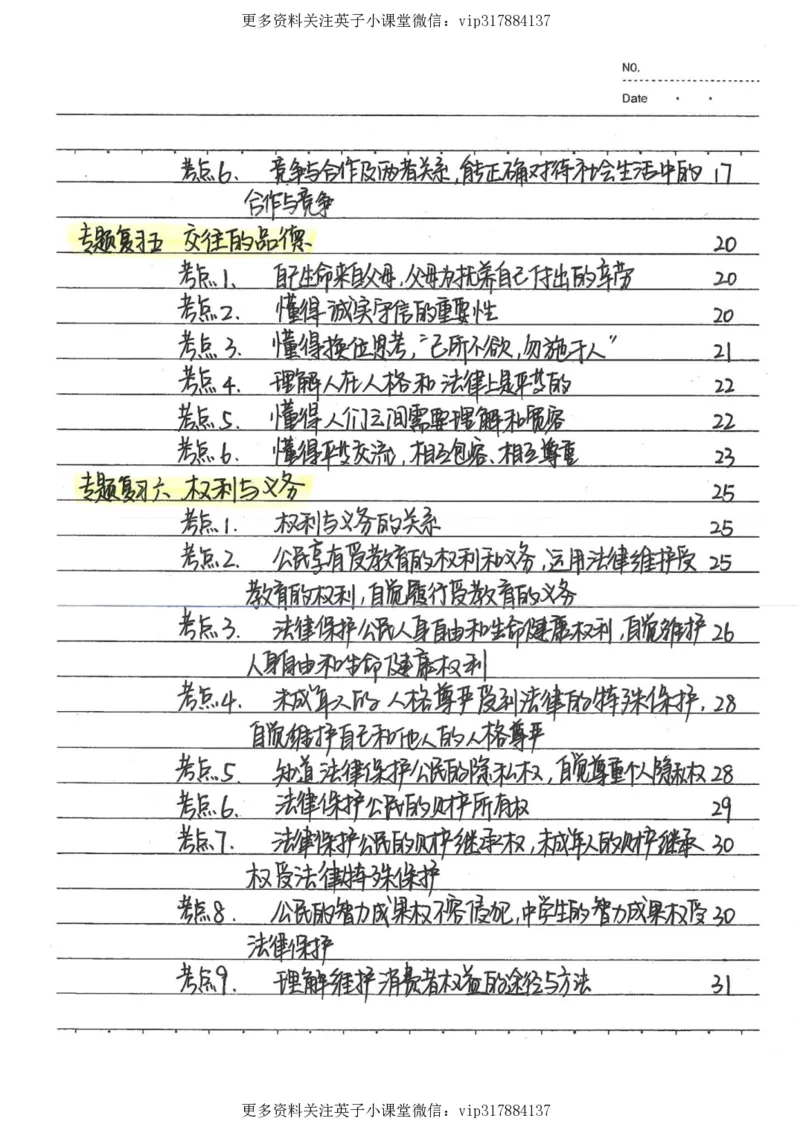 更多资料关注英子小课堂微信：vip317884137
NO.
Date
考点6. 竞争与合作及两者关系，能正确对待社会生活中的 17
合作与竞争
专题复习五 交往的品德 20
考点1. 自己生命来自父母，父母为抚养自己付出的辛劳 20
考点2. 懂得诚实守信的重要性 20
考点3. 懂得换位思考，“己所不欲，勿施于人” 21
考点4. 理解人在人格和法律上是平等的 22
考点5. 懂得人们之间需要理解和宽容 22
考点6. 懂得平等交流，相互包容、相互尊重 23
专题复习六 权利与义务 25
考点1. 权利与义务的关系 25
考点2. 公民享有受教育的权利和义务，运用法律维护受 25
教育的权利，自觉履行受教育的义务
考点3. 法律保护公民人身自由和生命健康权利，自觉维护 26
人身自由和生命健康权利
考点4. 未成年人的人格尊严受到法律的特殊保护， 28
自觉维护自己和他人的人格尊严
考点5. 知道法律保护公民的隐私权，自觉尊重个人隐私权 28
考点6. 法律保护公民的财产所有权 29
考点7. 法律保护公民的财产继承权，未成年人的财产继承 30
权受法律特殊保护
考点8. 公民的智力成果权不容侵犯，中学生的智力成果权受 30
法律保护
考点9. 理解维护消费者权益的途径与方法 31
更多资料关注英子小课堂微信：vip317884137